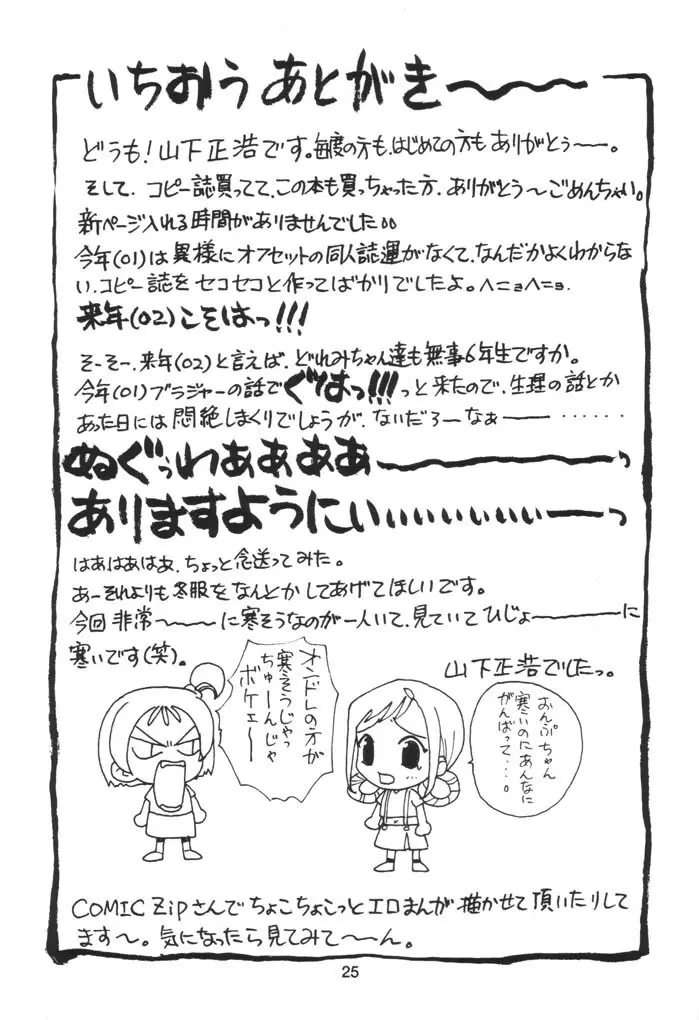 いちおう あとがき〜〜〜
どうも！山下正浩です。毎度の方も、はじめての方もありがとぅー。
そして、コピー誌買ってて、この本も買っちゃった方、ありがとう〜ごめんちゃい。
新ページ入れる時間がありませんでした。。
今年(01)は異様にオフセットの同人誌運がなくて、なんだかよくわからな
い、コピー誌をセコセコと作ってばかりでしたよ。ヘニョヘニョ。
来年(02)こそはっ!!!
そーそー、来年(02)と言えば、どれみちゃん達も無事6年生ですか。
今年(01)ブラジャーの話でぐはっ!!!っと来たので、生理の話とか
あった日には悶絶しまくりでしょうが、ないだろーなぁー……
ぬぐっわぁぁぁぁ〜っ
ありますようにぃぃぃぃぃぃぃぃーっ
はぁはぁはぁ、ちょっと念送ってみた。
あーそれよりも冬服をなんとかしてあげてほしいです。
今回非常〜〜に寒そうなのが一人いて、見ていてひじょーに
寒いです(笑)。
山下正浩でしたっ。
オンドレの方が
寒そうじゃっ
ちゅーんじゃ
ボケェ〜
おんぷちゃん
寒いのにあんなに
がんばって・・・。
COMIC Zipさんでちょこちょこっとエロまんが描かせて頂いたりして
ます〜。気になったら見てみて〜ん。
25